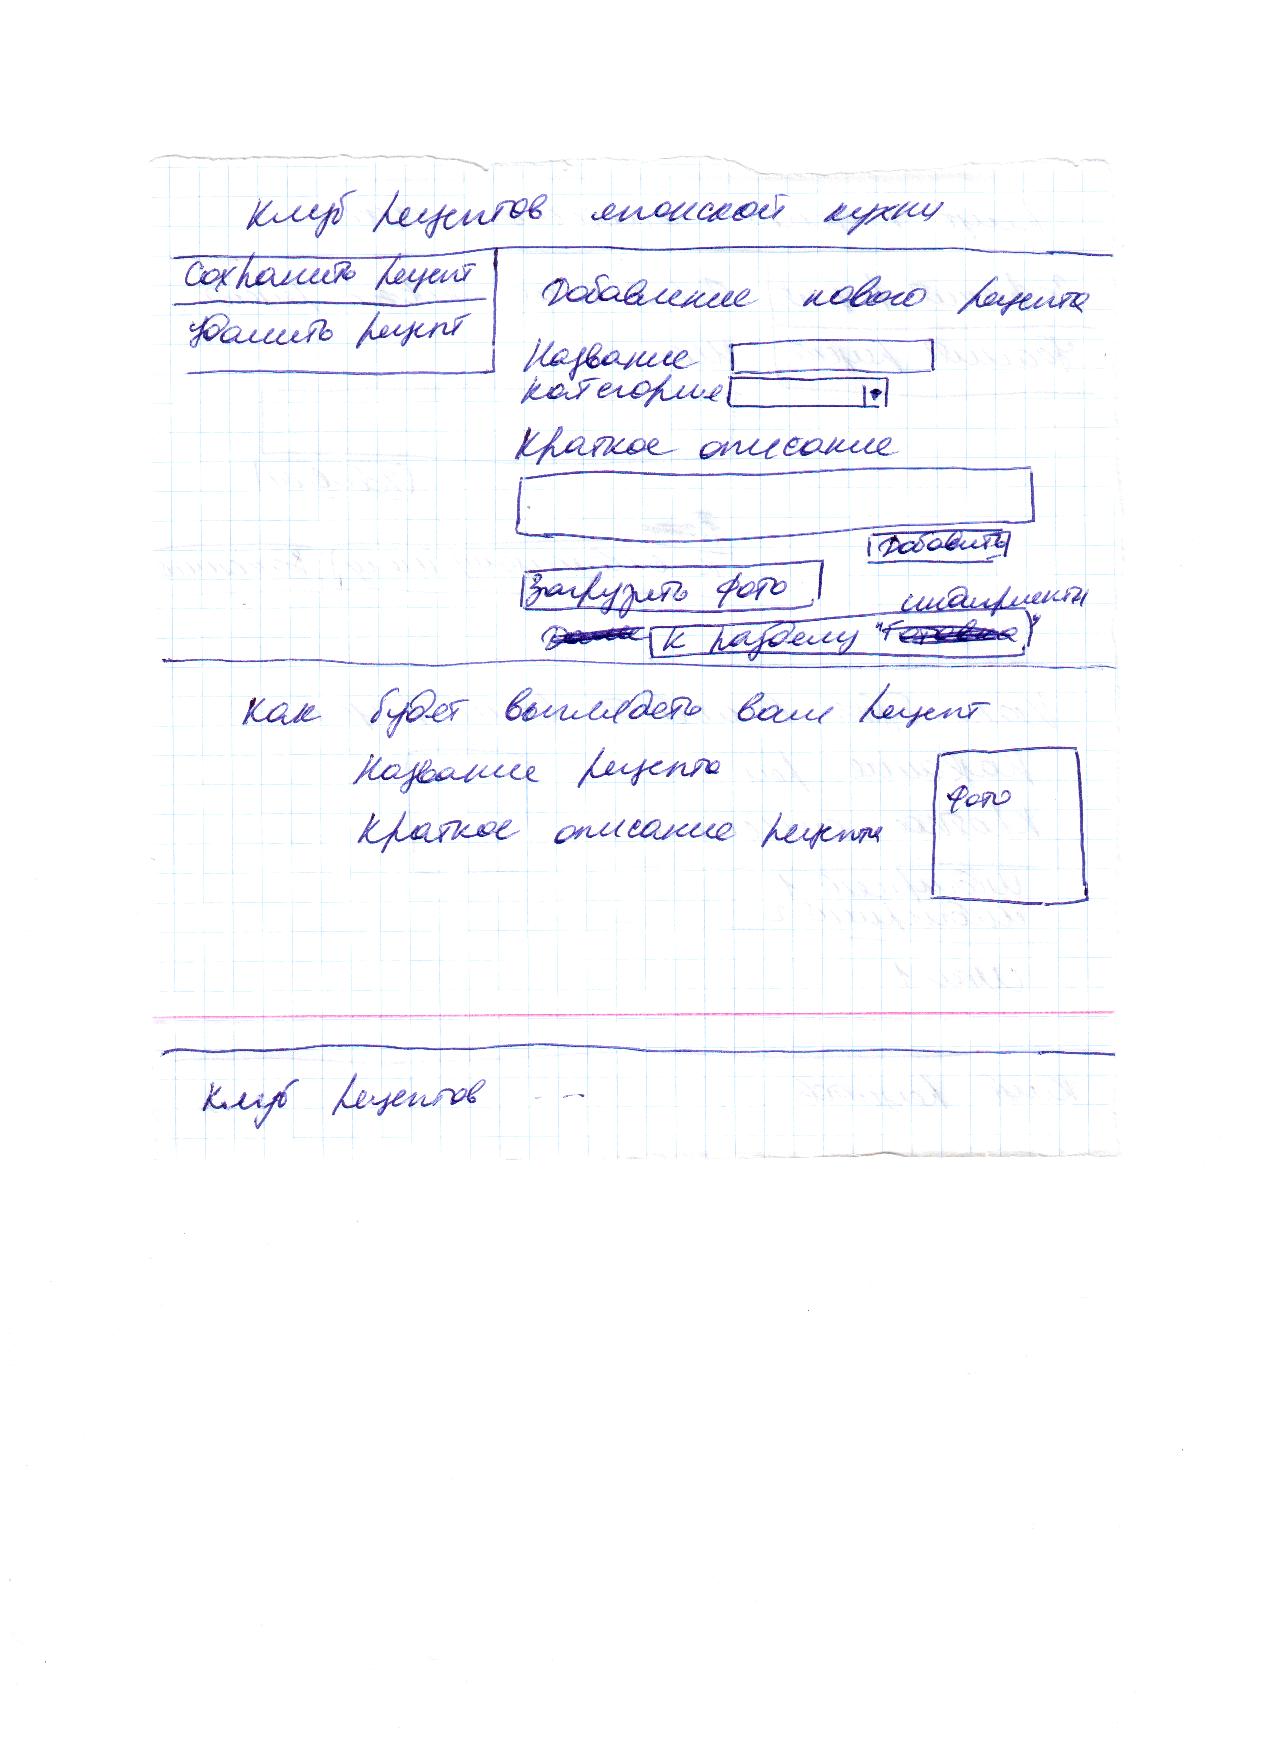 Клуб рецептов японской кухни
Сохранить рецепт
Удалить рецепт
Добавление нового рецепта
Название
Категория
Краткое описание
Добавить
Загрузить фото
индигриенты
К разделу "Готовка"
Как будет выглядеть ваш рецепт
Название рецепта
Фото
Краткое описание рецепта
Клуб рецептов --